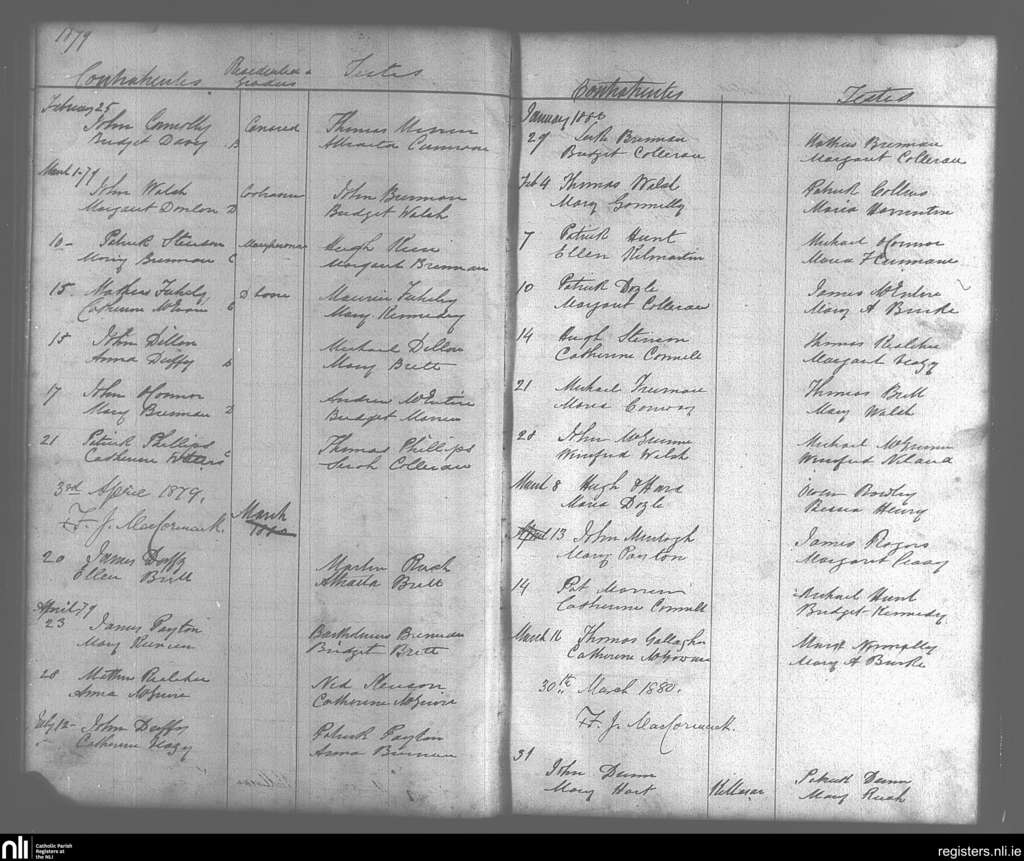 1879
Contrahentes Residentia & gradus Testes
February 25
John Connolly Canared Thomas
Bridget Davy B Cunnane
March 1-79
John Walsh John Brennan
Margaret Donlon D Bridget Walsh
10- Patrick Stenson Hugh
Mary Brennan C Margaret Brennan
15 Mathew D Loone Maurice
Catherine C Mary Kennedy
15 John Dillon Michael Dillon
Anna Duffy Mary Brett
17 John O'Connor Andrew McEntire
Mary Brennan D Bridget
21 Patrick Phillips Thomas Phillips
Catherine Waters Sarah Colleran
3rd April 1879.
F. J. MacCormack. March
1880
20 James Duffy Martin Rush
Ellen Brett Brett
April 79
23 James Payton Brennan
Mary Bridget Brett
28 Ned Stenson
Anna McGuire Catherine McGuire
July 12- John Duffy Patrick Payton
Catherine Anna Brennan
Contrahentes Testes
January 1880
29 Brennan Mathew Brennan
Bridget Colleran Margaret Colleran
Feb 4 Thomas Walsh Patrick Collins
Mary Gonnelly Maria
7 Patrick Hunt Michael O'Connor
Ellen Kilmartin Maria F Cunnane
10 Patrick Doyle James McEntire
Margaret Colleran Mary A Burke
14 Hugh Stenson Thomas
Catherine Connell Margaret
21 Michael Freeman Thomas Brett
Maria Conway Mary Walsh
28 John Michael
Winefred Walsh Winefred Niland
March 8 Hugh O'Hara Owen
Maria Doyle Henry
April 13 John Murtagh James Rogers
Mary Payton Margaret
14 Pat Michael Hunt
Catherine Connell Bridget Kennedy
March 16 Thomas Gallagher
Catherine McGowan Mary A Burke
30th March 1880.
F. J. MacCormack.
31
John Dunn Patrick Dunn
Mary Hart Killasser Mary Rush
nli Catholic Parish
Registers at
the NLI
registers.nli.ie